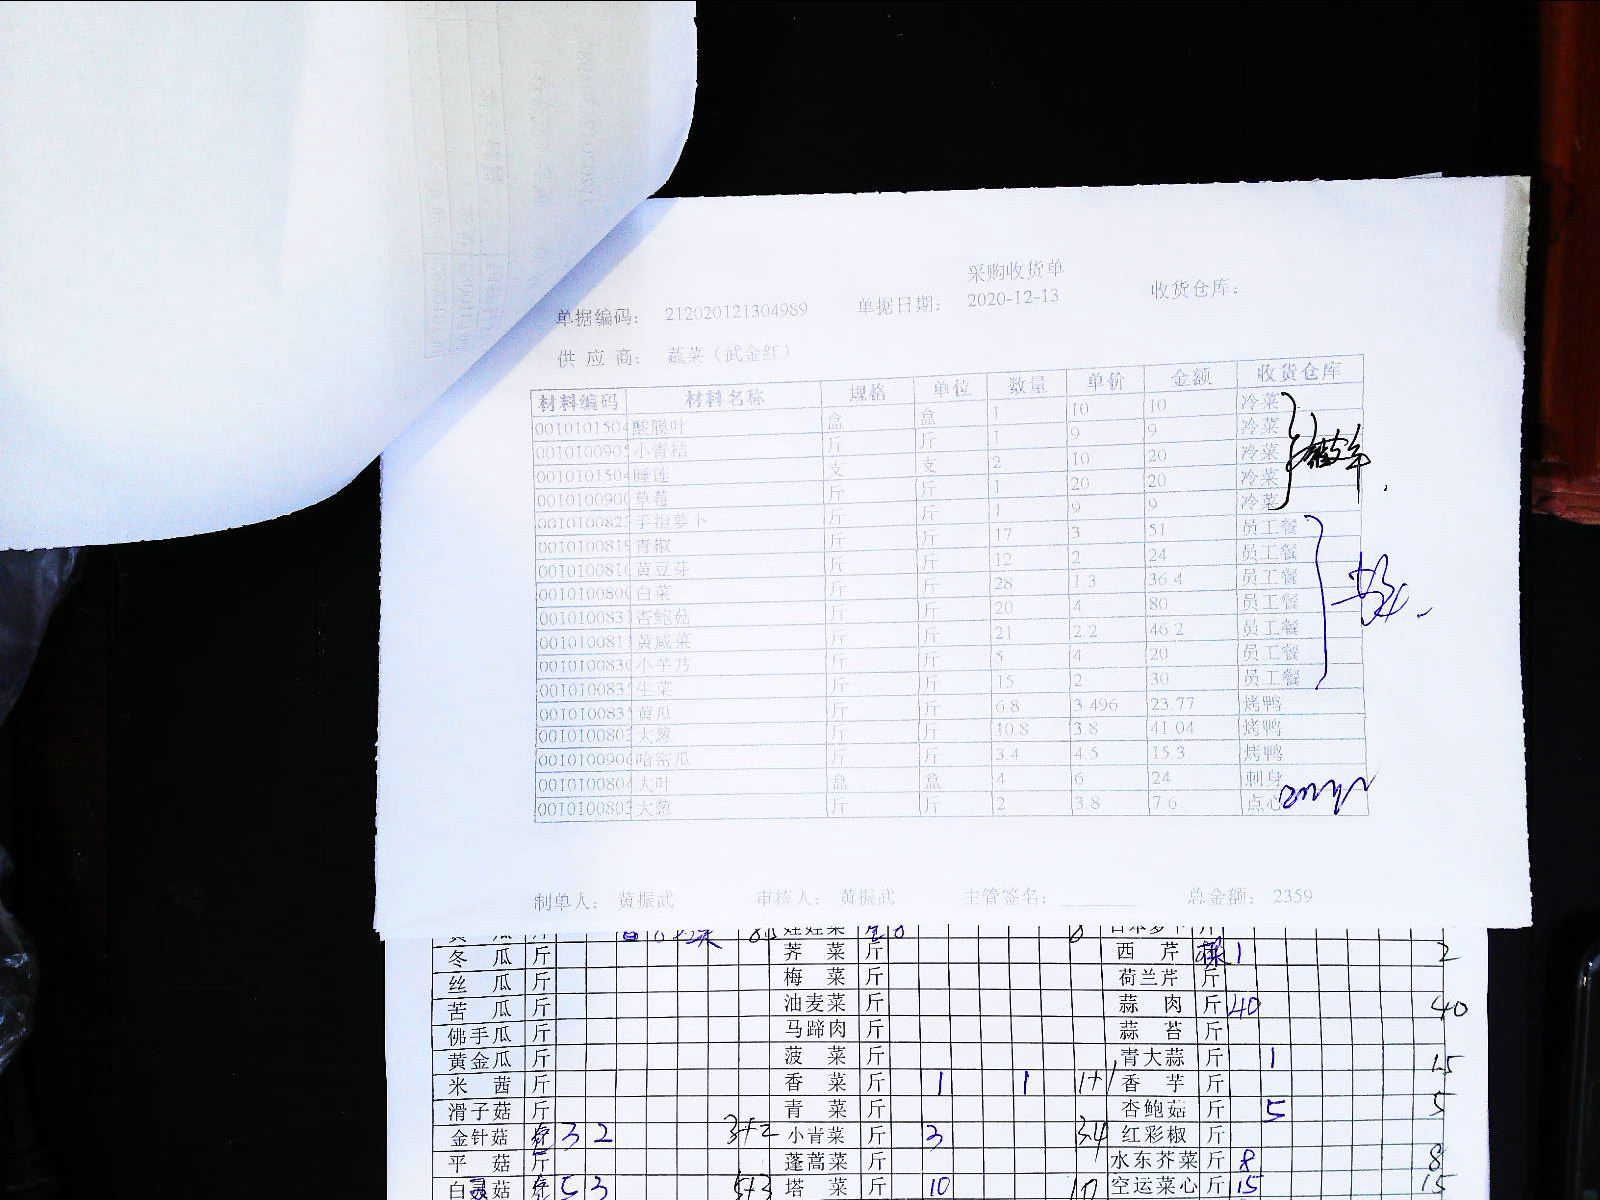 采购收货单
单据编码： 212020121304989 单据日期： 2020-12-13 收货仓库：
供 应 商： 蔬菜（武金红）
材料编码 材料名称 规格 单位 数量 单价 金额 收货仓库
0010101504 酸膜叶 盒 盒 1 10 10 冷菜
001010090 小青桔 斤 斤 1 9 9 冷菜
0010101504 睡莲 支 支 2 10 20 冷菜
001010090 草莓 斤 斤 1 20 20 冷菜
001010082 手指萝卜 斤 斤 1 9 9 冷菜
001010081 青椒 斤 斤 17 3 51 员工餐
001010081 黄豆芽 斤 斤 12 2 24 员工餐
001010080 白菜 斤 斤 28 1.3 36.4 员工餐
001010083 杏鲍菇 斤 斤 20 4 80 员工餐
001010081 黄咸菜 斤 斤 21 2.2 46.2 员工餐
001010083 小芋艿 斤 斤 5 4 20 员工餐
001010083 生菜 斤 斤 15 2 30 员工餐
001010083 黄瓜 斤 斤 6.8 3.496 23.77 烤鸭
001010080 大葱 斤 斤 10.8 3.8 41.04 烤鸭
001010090 哈密瓜 斤 斤 3.4 4.5 15.3 烤鸭
001010080 大叶 盒 盒 4 6 24 刺身
001010080 大葱 斤 斤 2 3.8 7.6 点心
制单人： 黄振武 审核人： 黄振武 主管签名： 总金额： 2359
冬瓜 斤 荠菜 斤 西芹 棵 1 2
丝瓜 斤 梅菜 斤 荷兰芹 斤
苦瓜 斤 油麦菜 斤 蒜肉 斤 40 40
佛手瓜 斤 马蹄肉 斤 蒜苔 斤
黄金瓜 斤 菠菜 斤 青大蒜 斤 1 1.5
米茜 斤 香菜 斤 1 1 1+1 香芋 斤
滑子菇 斤 青菜 斤 杏鲍菇 斤 5 5
金针菇 3 2 3+2 小青菜 斤 3 3.4 红彩椒 斤
平菇 斤 蓬蒿菜 斤 水东芥菜 斤 8 8
白灵菇 5 3 5+3 塔菜 斤 10 10 空运菜心 斤 15 15